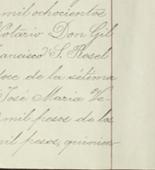 mil ochocientos
Notario Don Gil
Francisco S. Rosel
dose de la sétima
José Maria Ve-
mil pesos de los
mil pesos, quinien